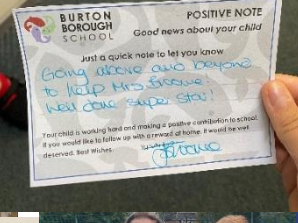 BURTON
BOROUGH
SCHOOL
POSITIVE NOTE
Good news about your child
Just a quick note to let you know
Going above and beyond
to help Mrs Browne.
Well done super star!
Your child is working hard and making a positive contribution to school.
If you would like to follow up with a reward at home. It would be well
deserved. Best Wishes.